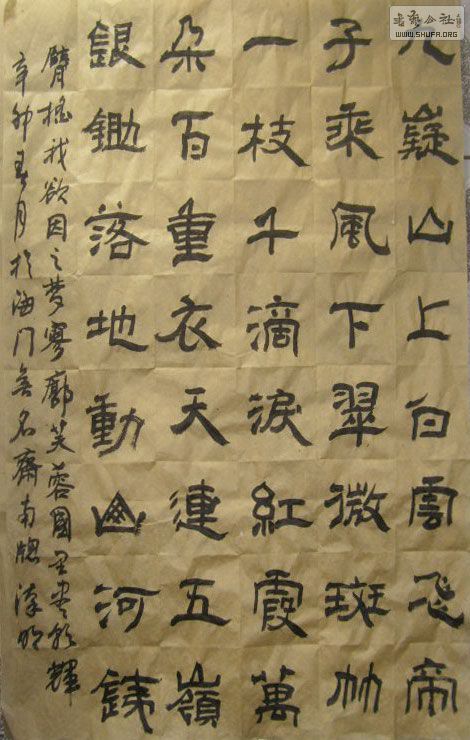 九嶷山上白雲飞帝
子乘風下翠微斑竹
一枝千滴淚紅霞萬
朵百重衣天連五嶺
銀鋤落地動山河銕
臂摇我欲因之梦寥廓芙蓉國里尽朝輝
辛卯春月於海门無名齋南牕
WWW.SHUFA.ORG